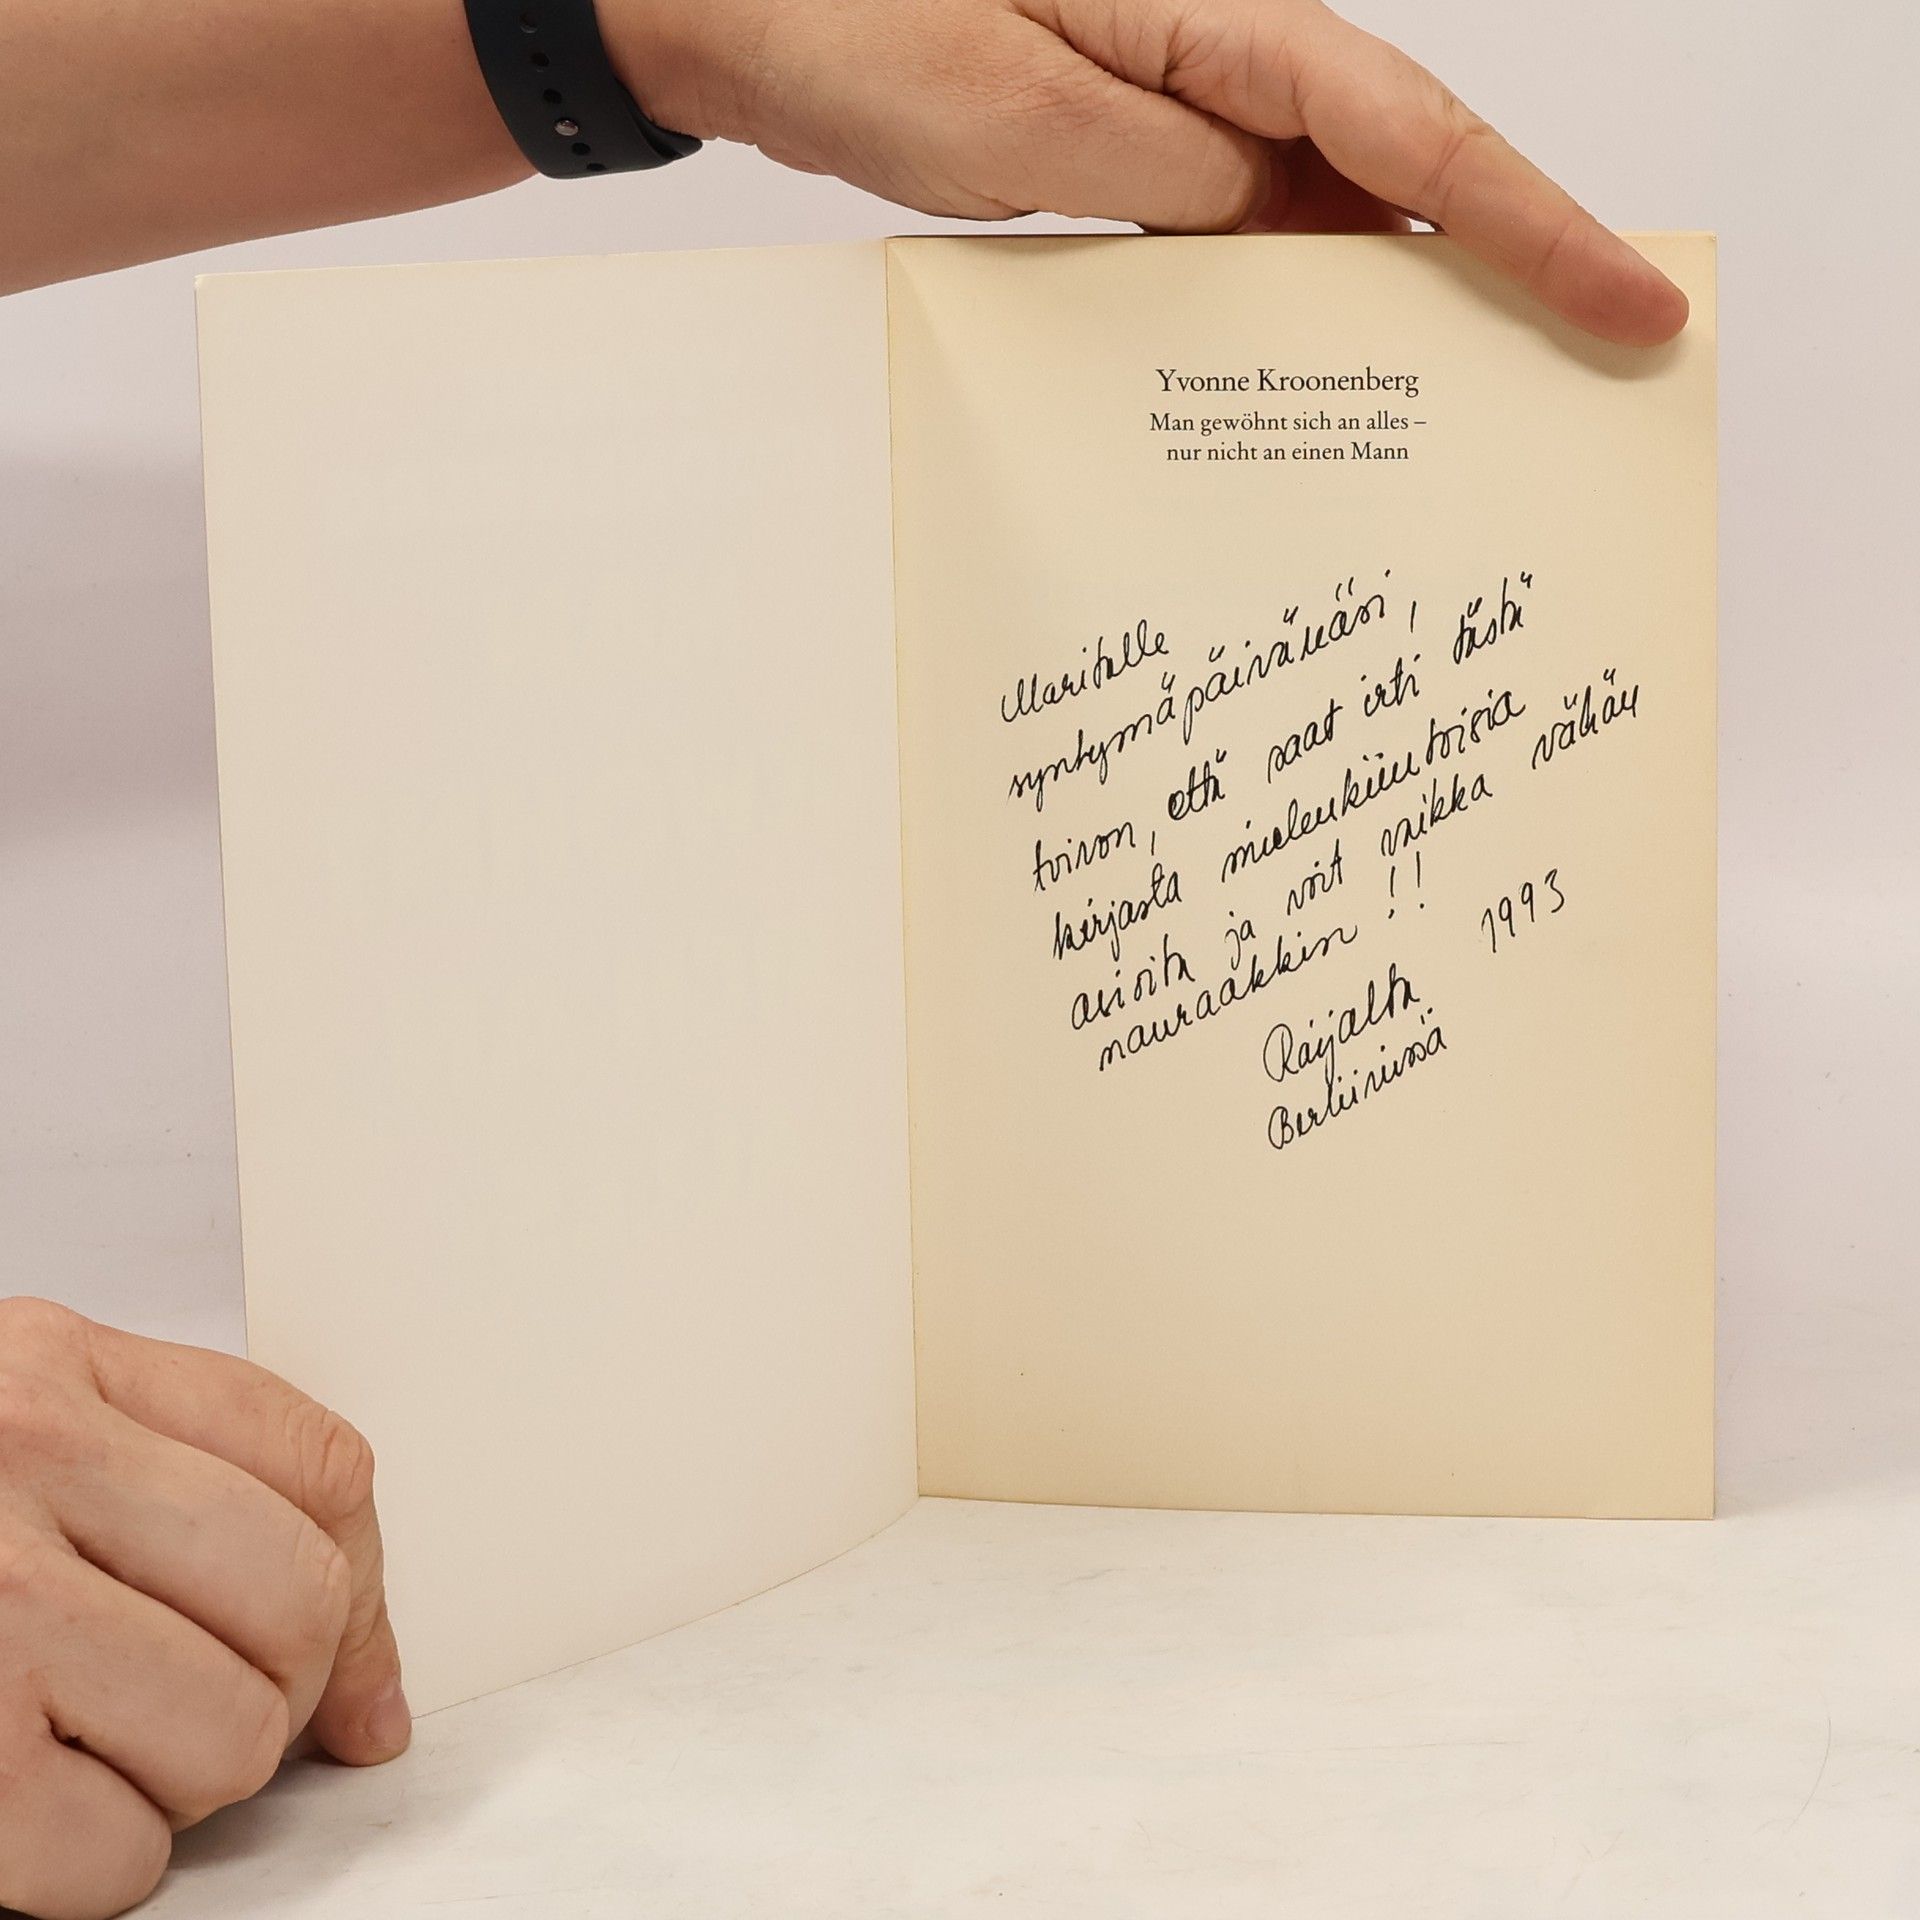 Yvonne Kroonenberg
Man gewöhnt sich an alles –
nur nicht an einen Mann
Maritalle
syntymäpäivänäsi,
toivon, että saat irti tästä
kirjasta mielenkiintoisia
asioita ja voit vaikka vähän
nauraakkin !!
1993
Raijalta
Berliinissä